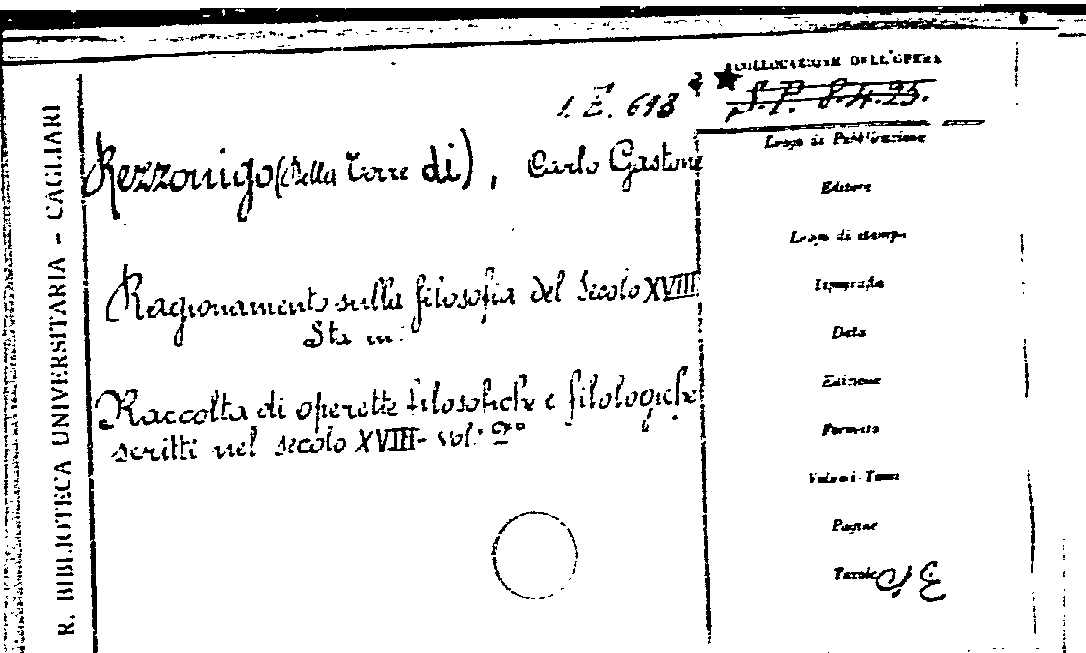 R. BIBLIOTECA UNIVERSITARIA - CAGLIARI
COLLOCAZIONE DELL'OPERA
1. E. 618
S.P. 8.4.25.
Rezzonigo (Della Torre di), Carlo Gastone
Ragionamento sulla filosofia del Secolo XVIII
Sta in:
Raccolta di operette filosofiche e filologiche
scritti nel secolo XVIII - vol. 2º
Luogo di Pubblicazione
Editore
Luogo di stampa
Tipografia
Data
Edizione
Formato
Volumi-Tomi
Pagine
Tavole